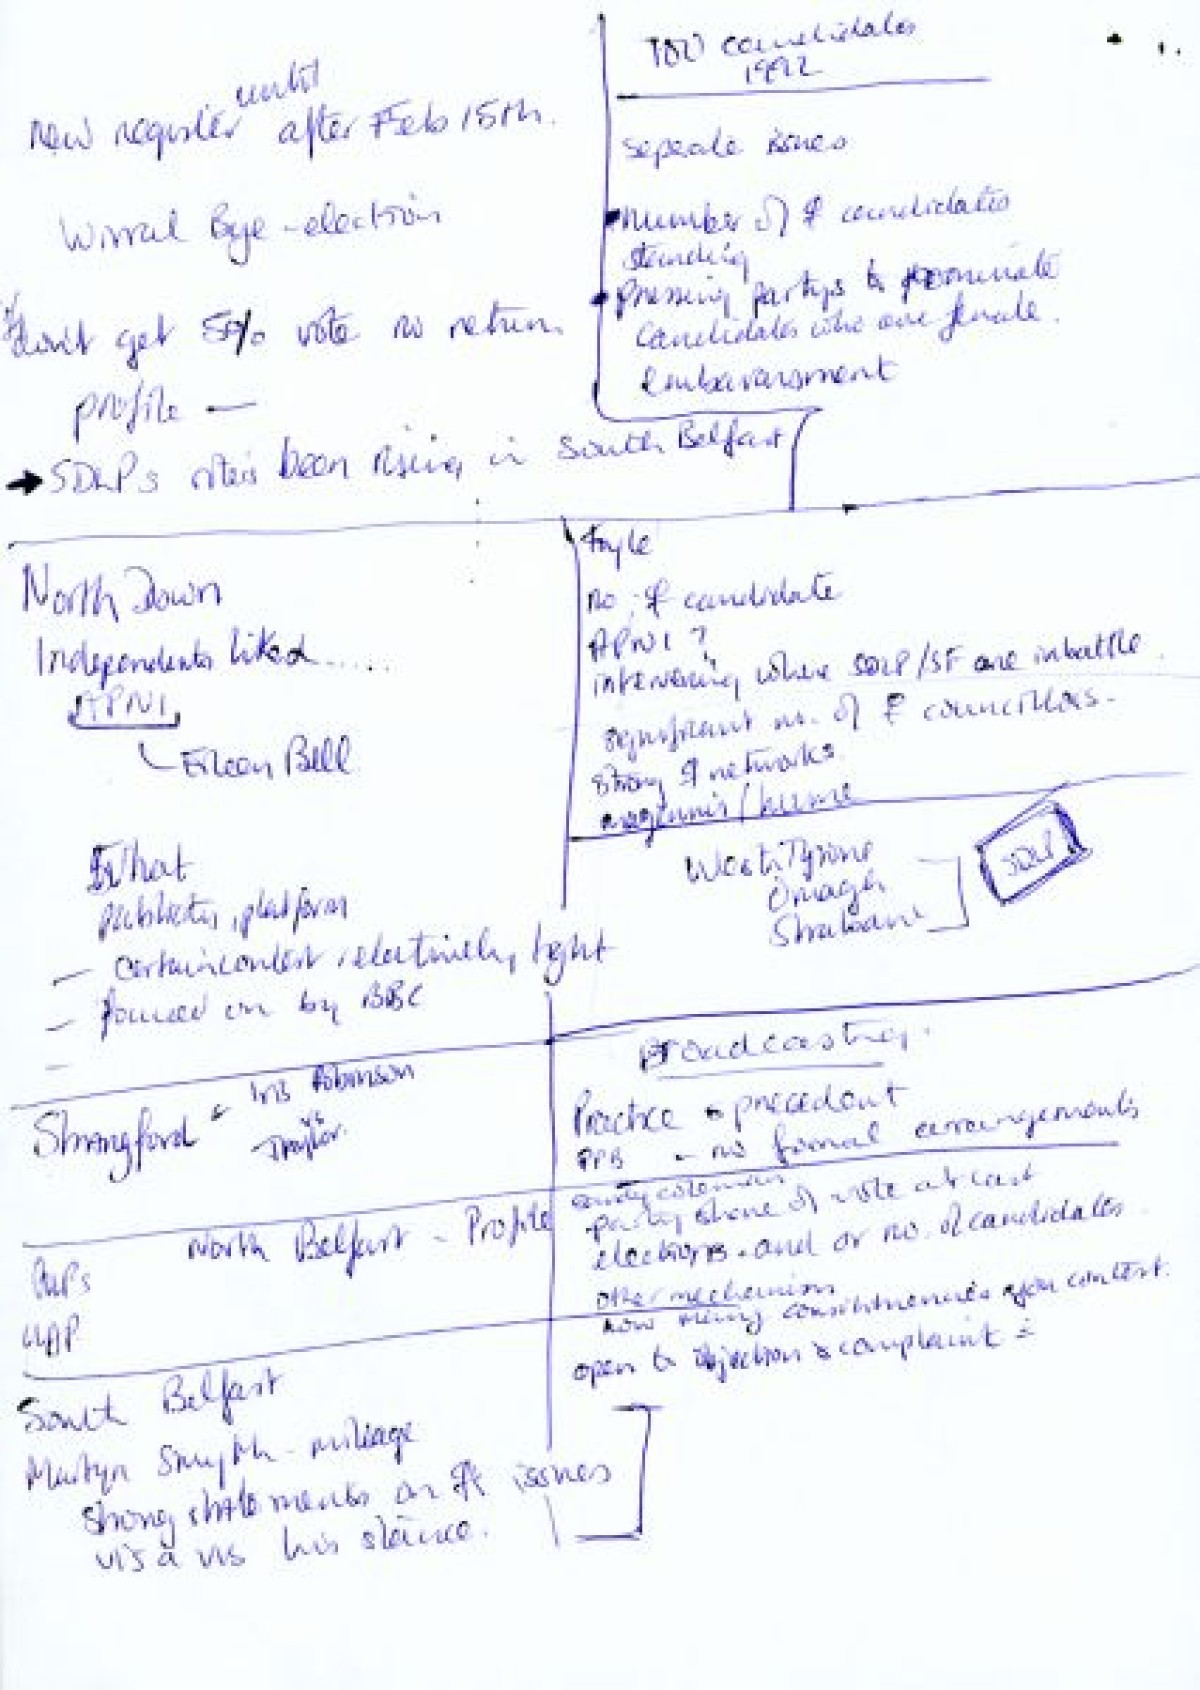 New register until after Feb 15th.
Wirral Bye-election
don't get 5% vote no return
profile —
→ SDLPs vote's been rising in South Belfast
100 candidates
1992
seperate issues
number of ♀ candidates
standing
pressing partys to nominate
candidates who are female.
embarrassment
North Down
Independents liked.....
APNI
Eileen Bell
What
publicity, platform
— certain contest relatively tight
— focused on by BBC
—
Foyle
no. ♀ candidate
APNI ?
intervening where SDLP/SF are in battle.
significant no. of ♀ councillors.
strong ♀ networks.
magennis / hume
West Tyrone
Omagh
Strabane
SDLP
Strangford
Iris Robinson
vs
Taylor.
Broadcasting.
Practice & precedent
PPB – no formal arrangements
Sandy Coleman
party share of vote at last
elections. and or no. of candidates.
other mechanism
how many constituencies you contest.
open to objection & complaint
North Belfast - Profile
PUPs
UDP
South Belfast
Martyn Smyth - mileage
strong statements on ♀ issues
vis a vis his stance.